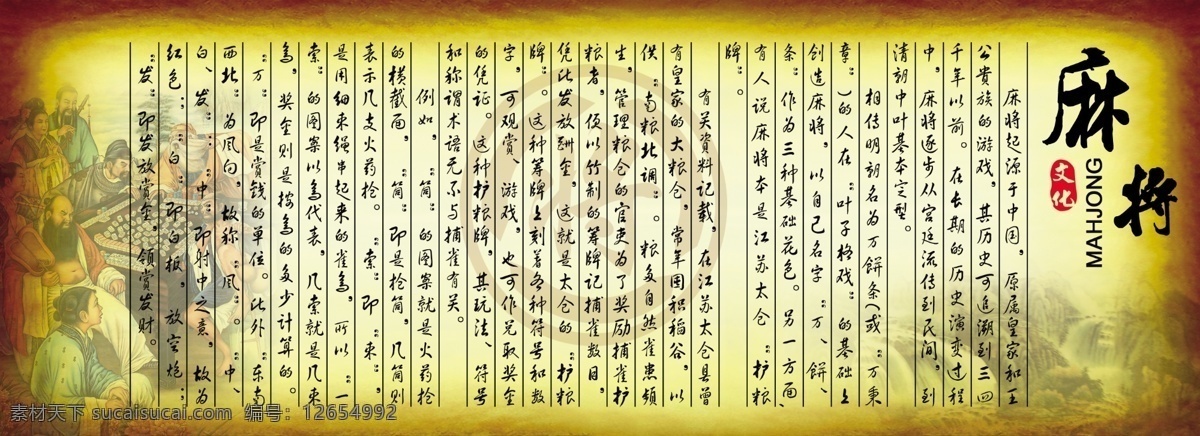 麻将
文化
MAHJONG
麻将起源于中国,原属皇家和王
公贵族的游戏,其历史可追溯到三四
千年以前。在长期的历史演变过程
中,麻将逐步从宫廷流传到民间,到
清朝中叶基本定型。
相传明朝名为万饼条(或“万秉
章”)的人在“叶子格戏”的基础上
创造麻将,以自己名字“万、饼、
条”作为三种基础花色。另一方面,
有人说麻将本是江苏太仓“护粮
牌”。
有关資料记载,在江苏太仓县曾
有皇家的大粮仓,常年囤积稻谷,以
供“南粮北调”。粮多自然雀患频
生,管理粮仓的官吏为了奖励捕雀护
粮者,便以竹制的筹牌记捕雀数目,
凭此发放酬金,这就是太仓的“护粮
牌”。这种筹牌上刻着各种符号和数
字,可观赏、游戏,也可作兑取奖金
的凭证。这种护粮牌,其玩法、符号
和称谓术语无不与捕雀有关。
例如,“筒”的图案就是火药枪
的横截面,“筒”即是枪筒,几筒则
表示几支火药枪。“索”即“束”,
是用细束绳串起来的雀鸟,所以“一
索”的图案以鸟代表,几索就是几束
鸟,奖金则是按鸟的多少计算的。
“万”即是赏钱的单位。此外“东南
西北”为风向,故称“风”。“中、
白、发”:“中”即射中之意,故为
红色;“白”即白板,放空炮;
“发”即发放赏金,领赏发财。
素材天下 sucaisucai.com 编号:12654992